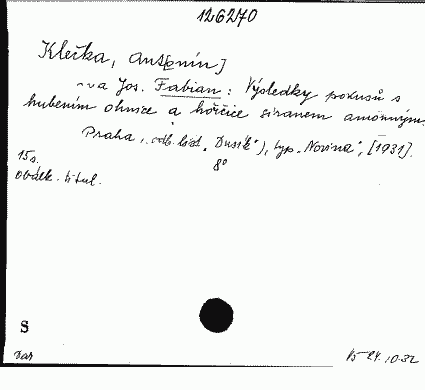 126270
Klečka, Ant[onín]
-va Jos. Fabian: Výsledky pokusů s
hubením ohnice a hořčice síranem amonným.
Praha, odb. část „Dusík“), typ. „Novina“, [1931].
15 s. 8°
obálk. titul.
S
24.10.32